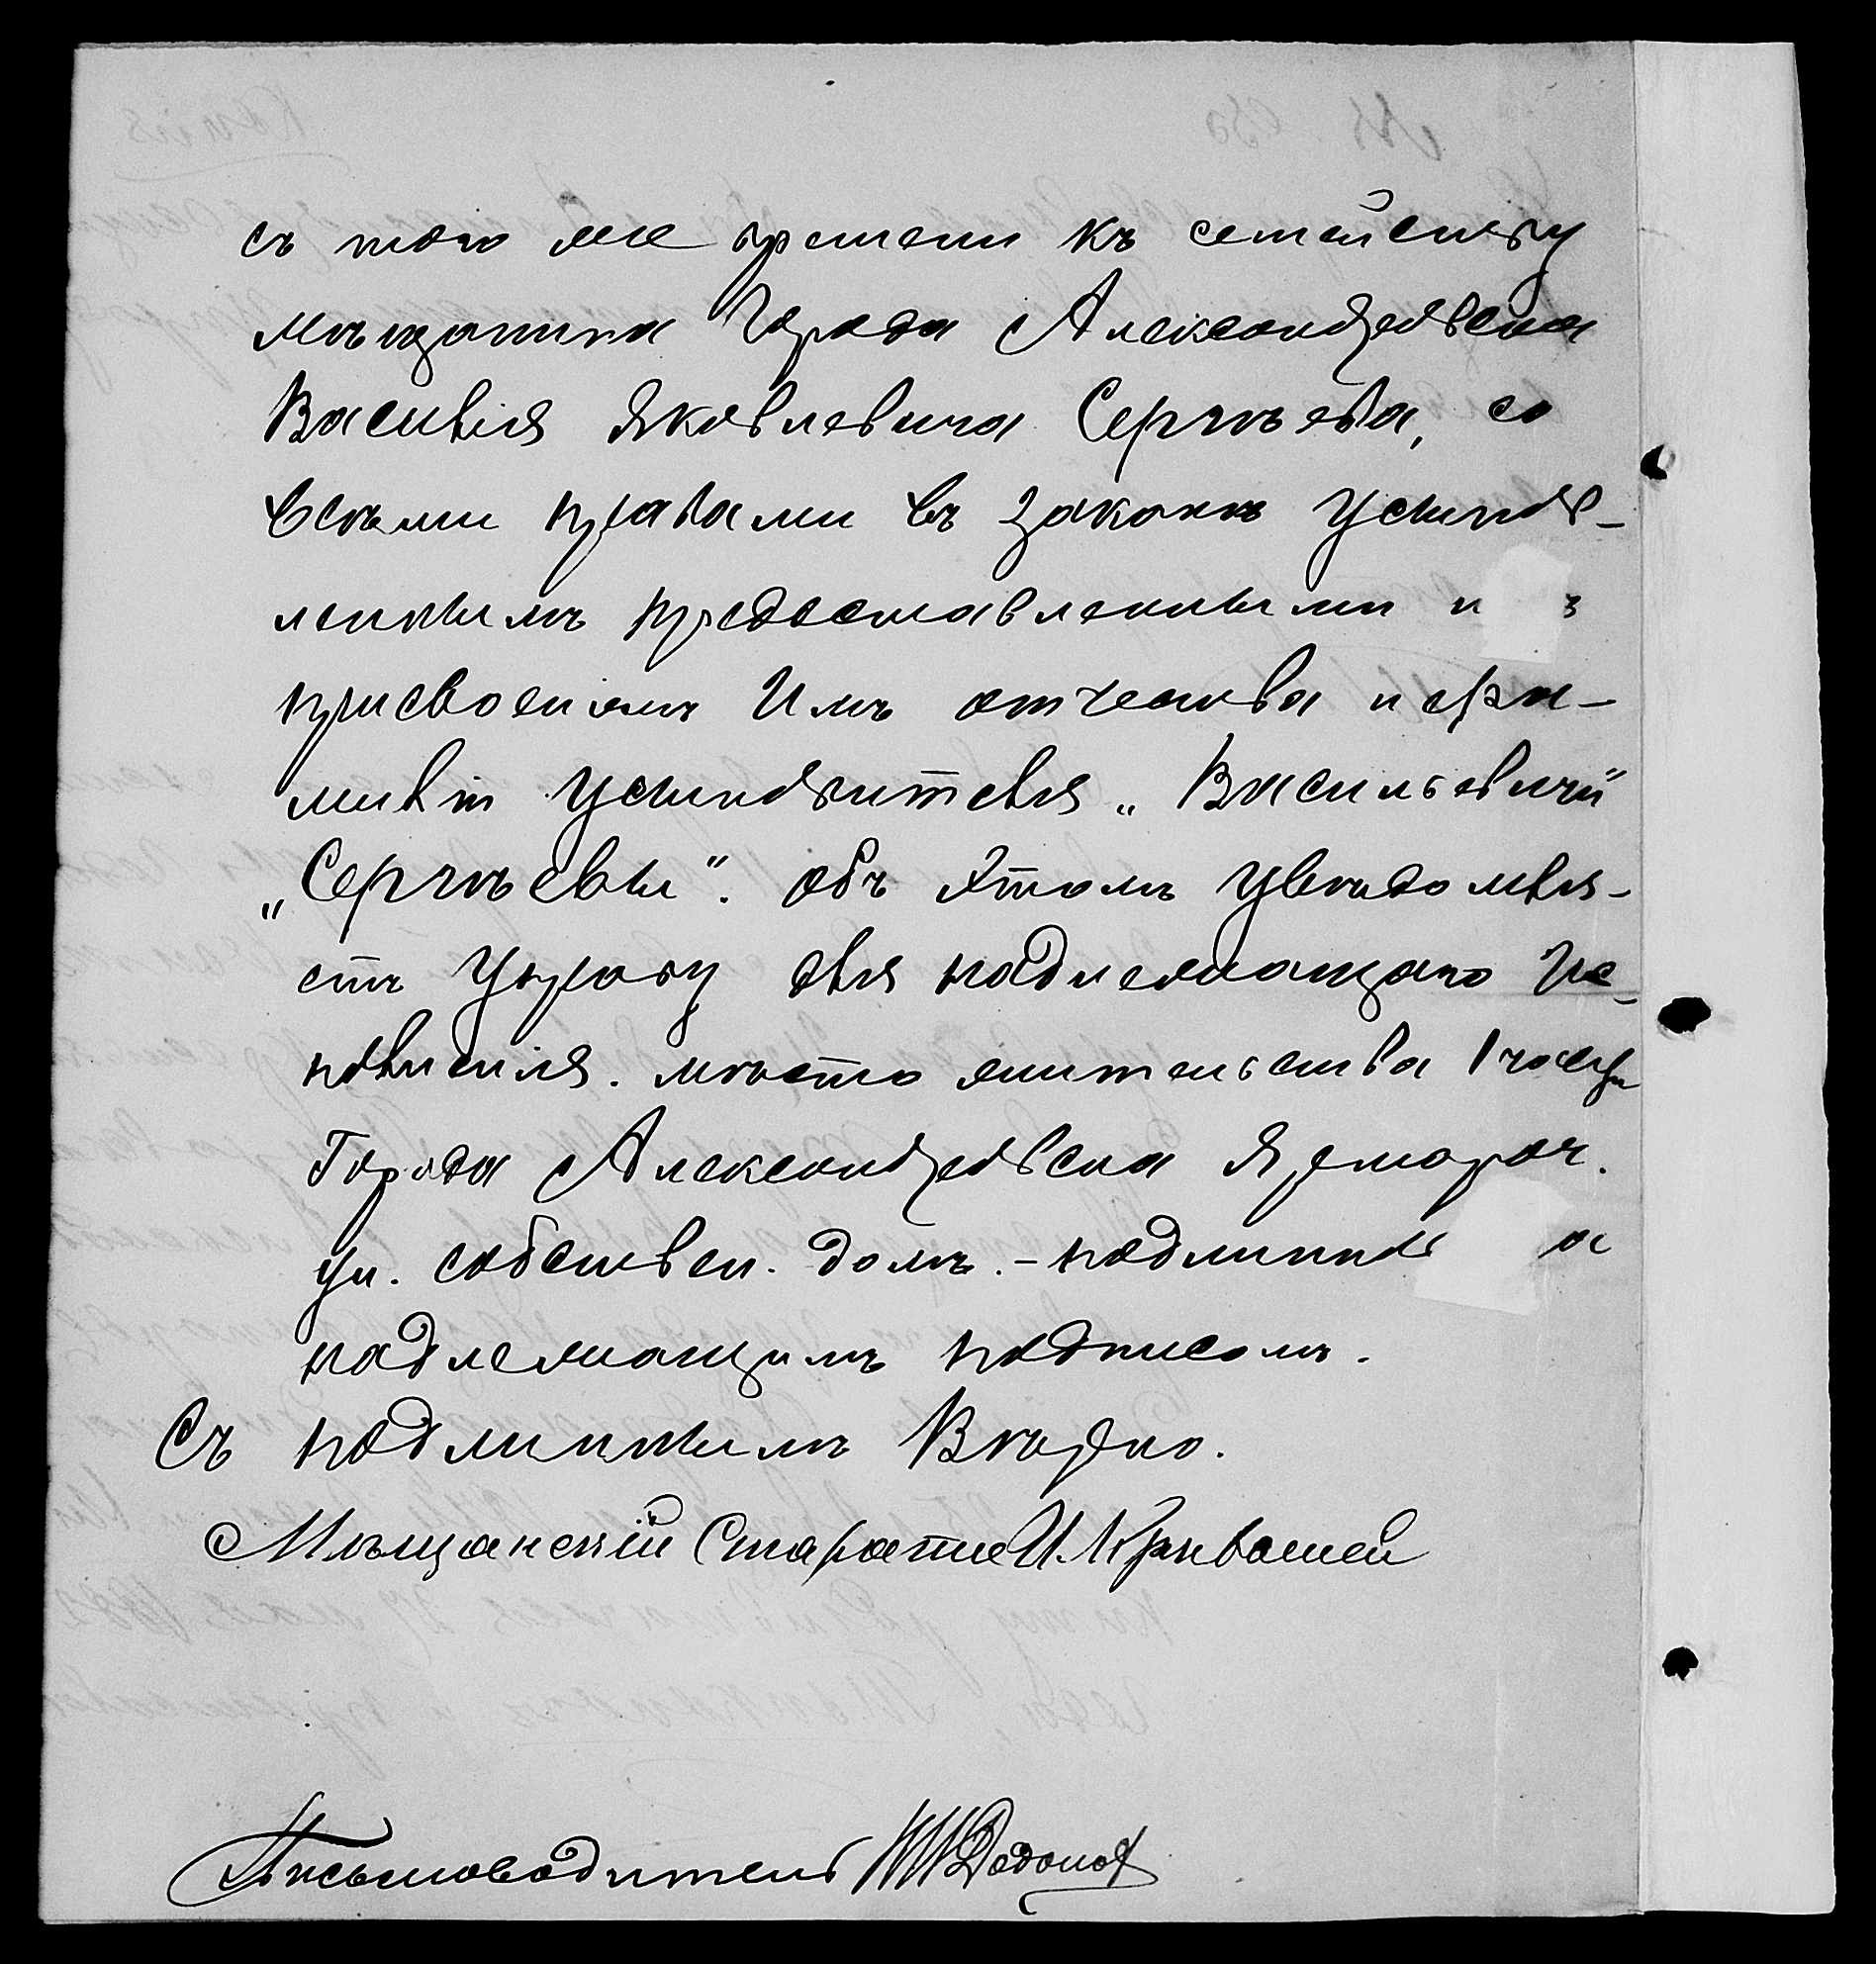 съ того же времени къ семейству
мѣщанина Города Александровска
Василія Яковлевича Сергѣева, со
всѣми правами въ законѣ усынов-
леннымъ предоставленными и ъ
присвоеніемъ Имъ отчества и фа-
миліи усыновителя „Васильевичи"
„Сергѣевы". объ этомъ увѣдомля-
етъ Управу для надлежащаго Ис-
полненія. мѣсто жительства 1 части
Города Александровска Ярмароч.
ул. собствен. домъ. – подлинное а
надлежащимъ подписомъ.
Съ подлиннымъ Вѣрно.
Мѣщанскій Староста И. Кривошей
Письмоводитель Додонов